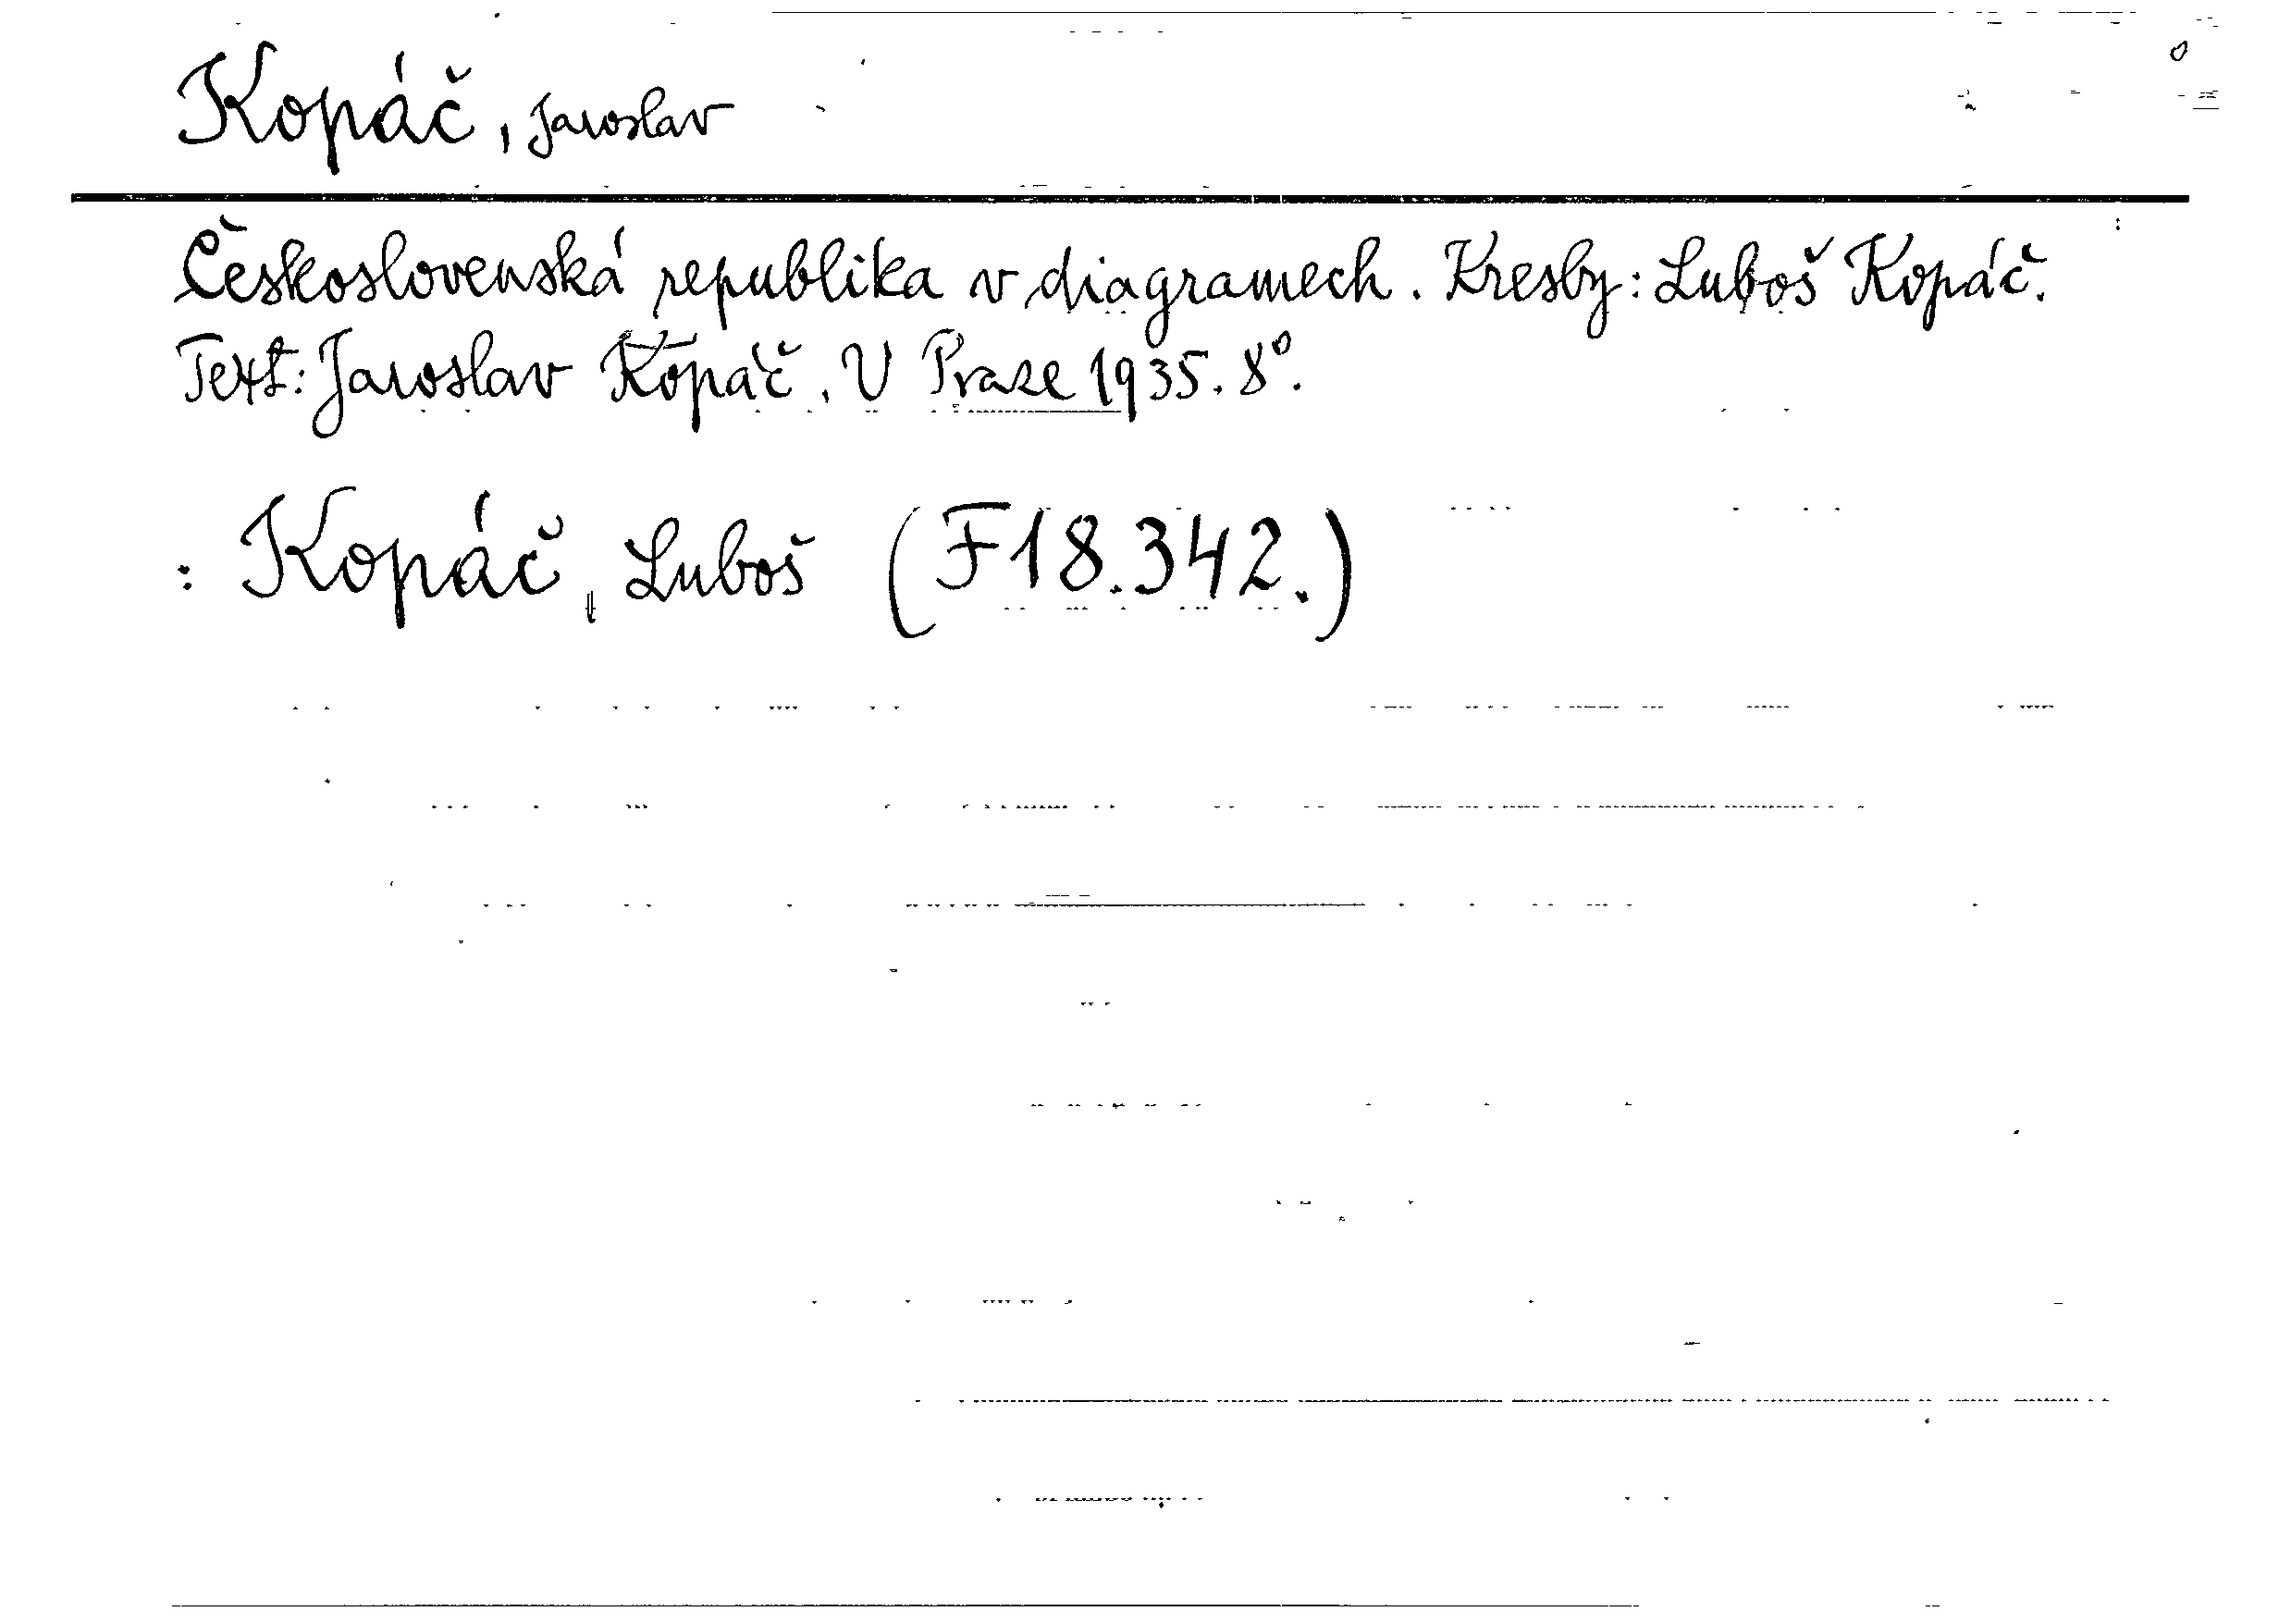 Kopáč, Jaroslav
Československá republika v diagramech. Kresby: Luboš Kopáč.
Text: Jaroslav Kopáč. V Praze 1935. 8°.
: Kopáč, Luboš (F18.342.)